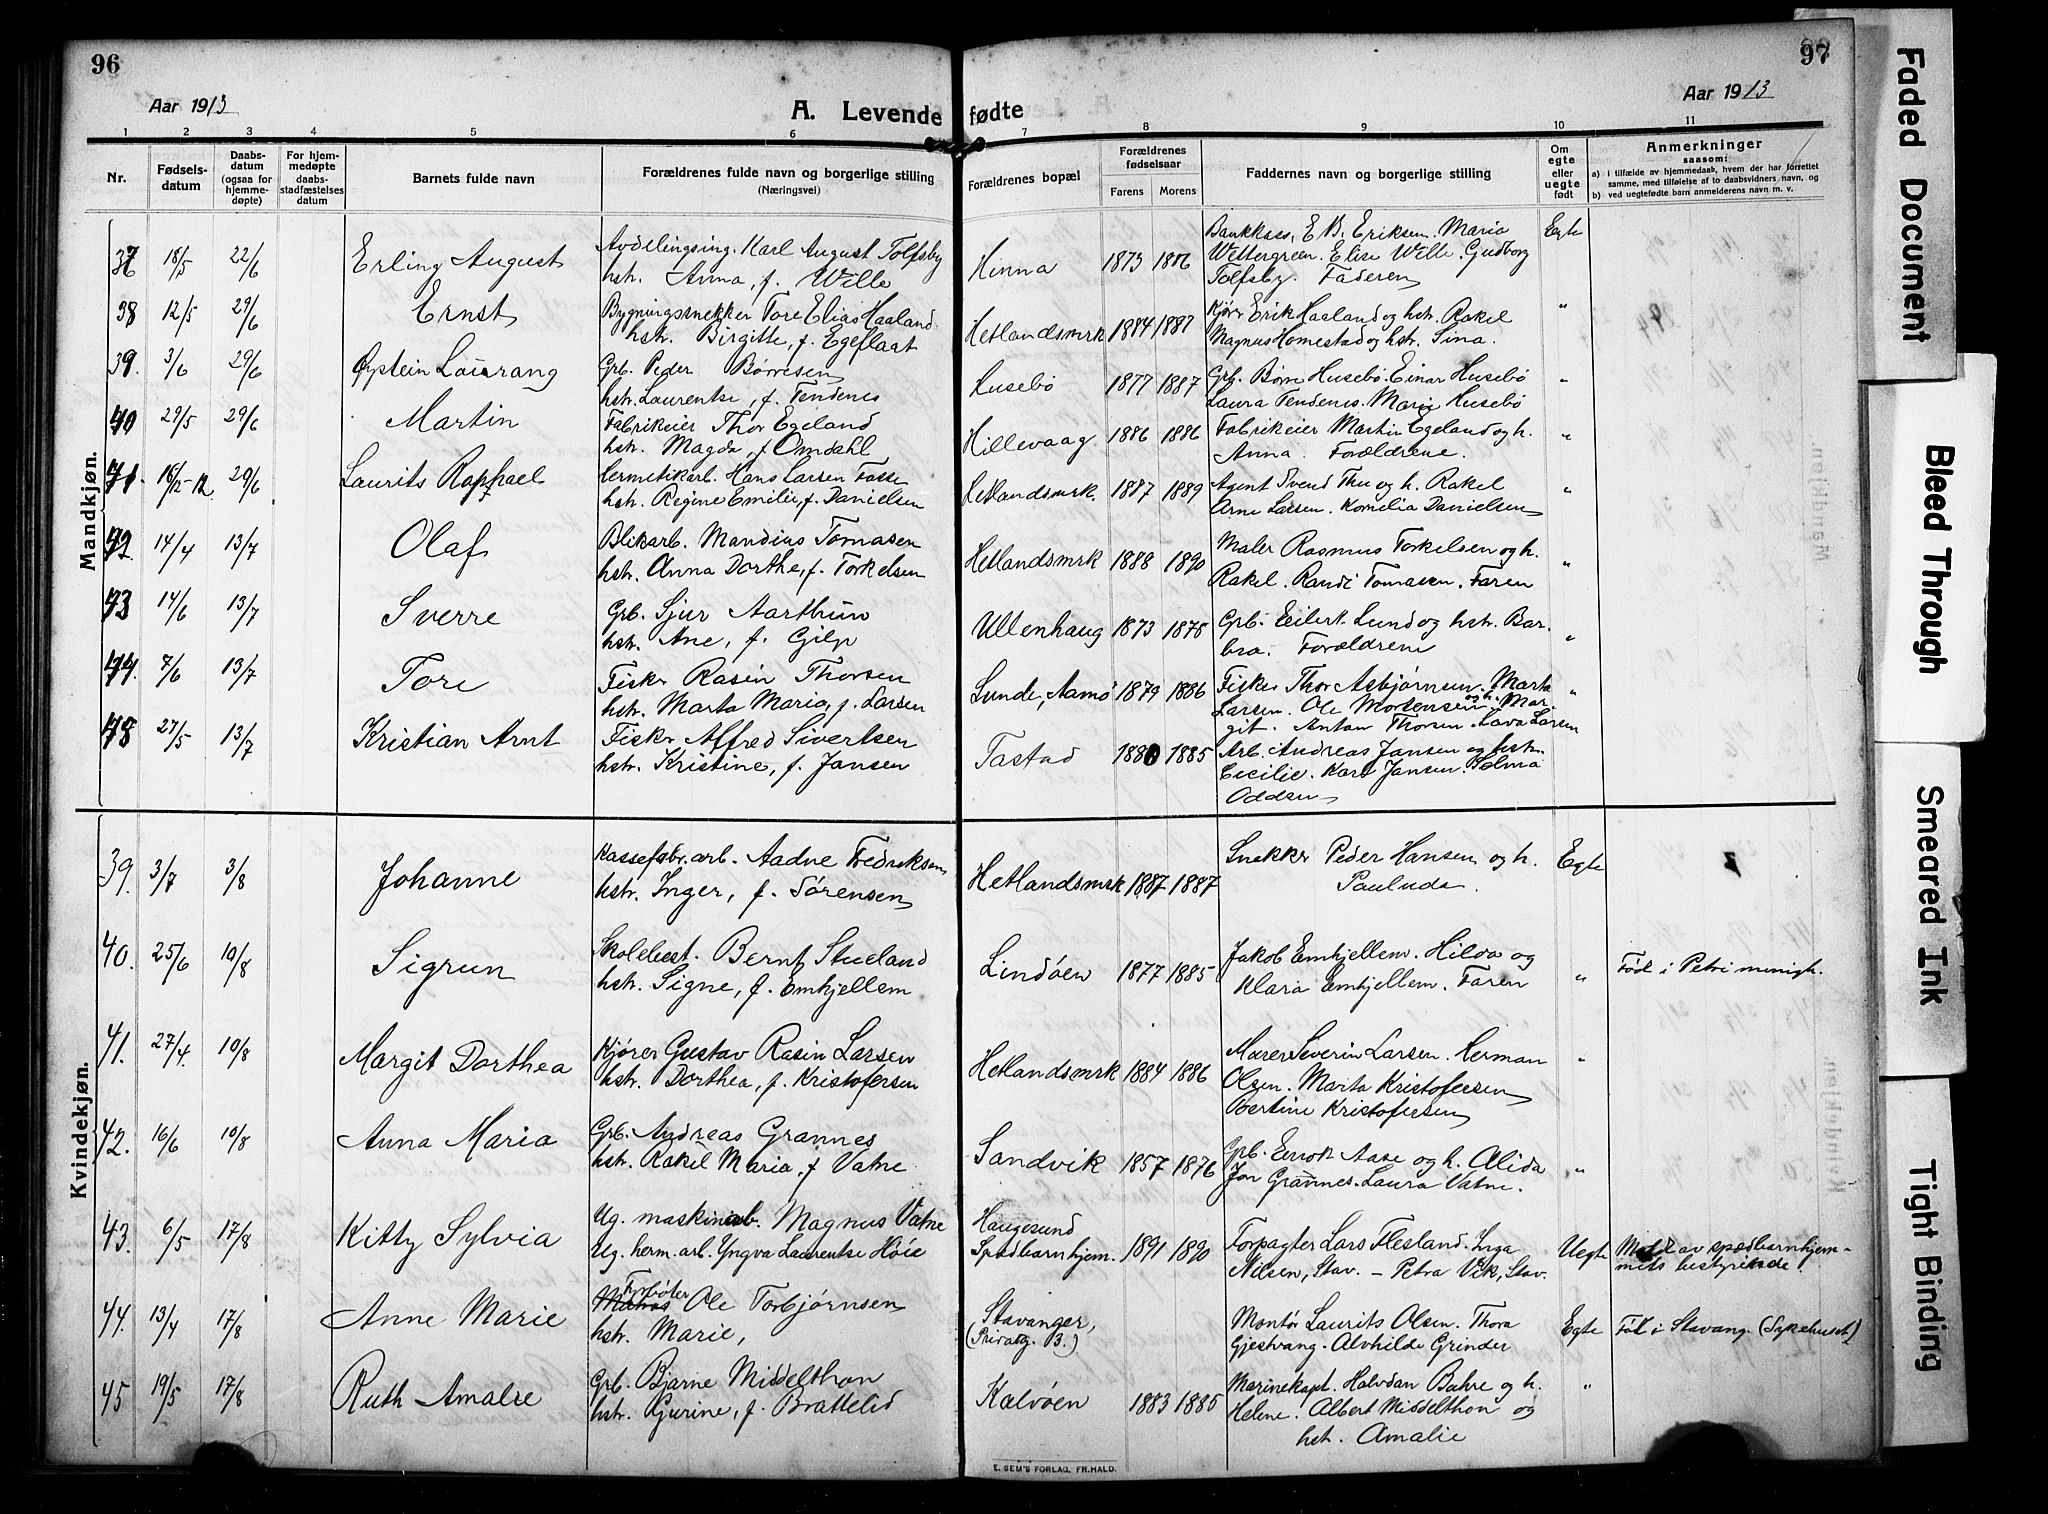 96
97
Aar 1913
A. Levende fødte
Aar 1913
1 2 3 4 5 6 7 8 9 10 11
Nr.
Fødsels-
datum
Daabs-
datum
(ogsaa for
hjemme-
døpte)
For hjem-
medøpte
daabs-
stadfæstelses
datum
Barnets fulde navn
Forældrenes fulde navn og borgerlige stilling
(Næringsvei)
Forældrenes bopæl
Forældrenes
fødselsaar
Farens Morens
Faddernes navn og borgerlige stilling
Om
egte
eller
uegte
født
Anmerkninger
saasom:
a) i tilfælde av hjemmedaab, hvem der har forrettet
samme, med tilføielse af to daabsvidners navn, og
b) ved uegtefødte barn anmelderens navn m. v.
Mandkjøn.
37 18/5 22/6 Erling August
Avdelingsing. Karl August Tolfsby
hstr. Anna, f. Wille
Hinna 1873 1886
Bankkass. E. B. Eriksen. Maria
Wettergreen. Elise Wille. Gudborg
Tolfsby. Faderen
Egte
38 12/5 29/6 Ernst
Bygningssnekker Tore Elias Haaland
hstr. Birgitte, f. Egeflaat
Hetlandsmrk 1884 1887
Kjør. Erik Haaland og hstr. Rakel
Magnus Homestad og hstr. Sina.
"
39. 3/6 29/6
Grb. Peder Børresen
hstr. Laurentse, f. Tendenes
Husebö 1877 1887
Grb. Børre Husebö. Einar Husebö
Laura Tendenes. Marie Husebö
"
40 29/5 29/6 Martin
Fabrikeier Thor Egeland
hstr. Magda, f. Omdahl
Hillevaag 1886 1886
Fabrikeier Martin Egeland og h.
Anna. Forældrene.
"
41. 29/6 Laurits Raphael
Hermetikarb. Hans Larsen Fosse
hstr. Regine Emilie, f. Danielsen
Hetlandsmrk. 1887 1889
Agent Svend Thu og h. Rakel
Arne Larsen. Kornelia Danielsen
"
42. 14/4 13/7 Olaf
Blikarb. Mandius Tomasen
hstr. Anna Dorthe, f. Torkelsen
Hetlandsmrk 1888 1890
Maler Rasmus Torkelsen og h.
Rakel. Randi Tomasen. Faren
"
43 14/6 13/7 Sverre
Grb. Sjur Aarthun
hstr. Ane, f. Gilje
Ullenhaug 1873 1875
Grb. Eilert Lund og hstr. Bar-
bra. Forældrene
"
44. 7/6 13/7 Tore
Fisker Rasin Thorsen
hstr. Marta Maria, f. Larsen
Lunde, Aamö 1879 1886
Fisker Thor Asbjørnsen. Marta
Larsen. Ole Mortensen og h. Mar-
git. Anton Thorsen. Lava Larsen
"
27/5 13/7 Kristian Arnt
Fisker Alfred Sivertsen
hstr. Kristine, f. Jansen
Tastad 1880 1885
Arb. Andreas Jansen og hstr.
Cecilie. Karl Jansen. Selma
Oddsen
Kvindekjøn.
39. 3/7 3/8 Johanne
Kassefabr.arb. Aadne Fredriksen
hstr. Inger, f. Sørensen
Hetlandsmrk 1887 1887
Snekker Peder Hansen og h.
Pauluda.
Egte
40. 25/6 10/8 Sigrun
Skolebest. Bernt Stueland
hstr. Signe, f. Emhjellem
Lindöen 1877 1885
Jakob Emhjellem. Hilda og
Klara Emhjellem. Faren
" Fød i Petri menigh.
41. 27/4. 10/8 Margit Dorthea
Kjører Gustav Rasin Larsen
hstr. Dorthea, f. Kristofersen
Hetlandsmrk 1884 1886
Murer Severin Larsen. Herman
Olsen. Marta Kristofersen
Bertine Kristofersen
"
42. 16/6 10/8 Anna Maria
Grb. Andreas Grannes
hstr. Rakel Maria, f. Vatne
Sandvik 1857 1876
Grb. Enok Aase og h. Alida
Jon Grannes. Laura Vatne.
"
43. 6/5 17/8 Kitty Sylvia
Ug. maskinarb. Magnus Vatne
Ug. herm. arb. Yngva Laurentse Höie
Haugesund
Spædbarnhjem. 1891 1890
Forpagter Lars Flesland. Inga
Nilsen, Stav. – Petra Vik, Stav.
Uegte
Meld av spædbarnhjem-
mets bestyrinde.
44. 13/4 17/8 Anne Marie
Fyrböter
Matros Ole Torbjørnsen
hstr. Marie,
Stavanger,
Montör Laurits Olsen. Thora
Gjestvang. Alvhilde Grinder
Egte Fød i Stavang. (Sykehuset)
45 19/5 17/8 Ruth Amalie
Grb. Bjarne Middelthon
hstr. Gurine, f. Brattelid
Kalvöen 1883 1885
Marinekapt. Halvdan Bahre og h.
Helene. Albert Middelthon og
hst. Amalie
"
E. SEM'S FORLAG, FR.HALD.
Faded Document
Bleed Through
Smeared Ink
Tight Binding